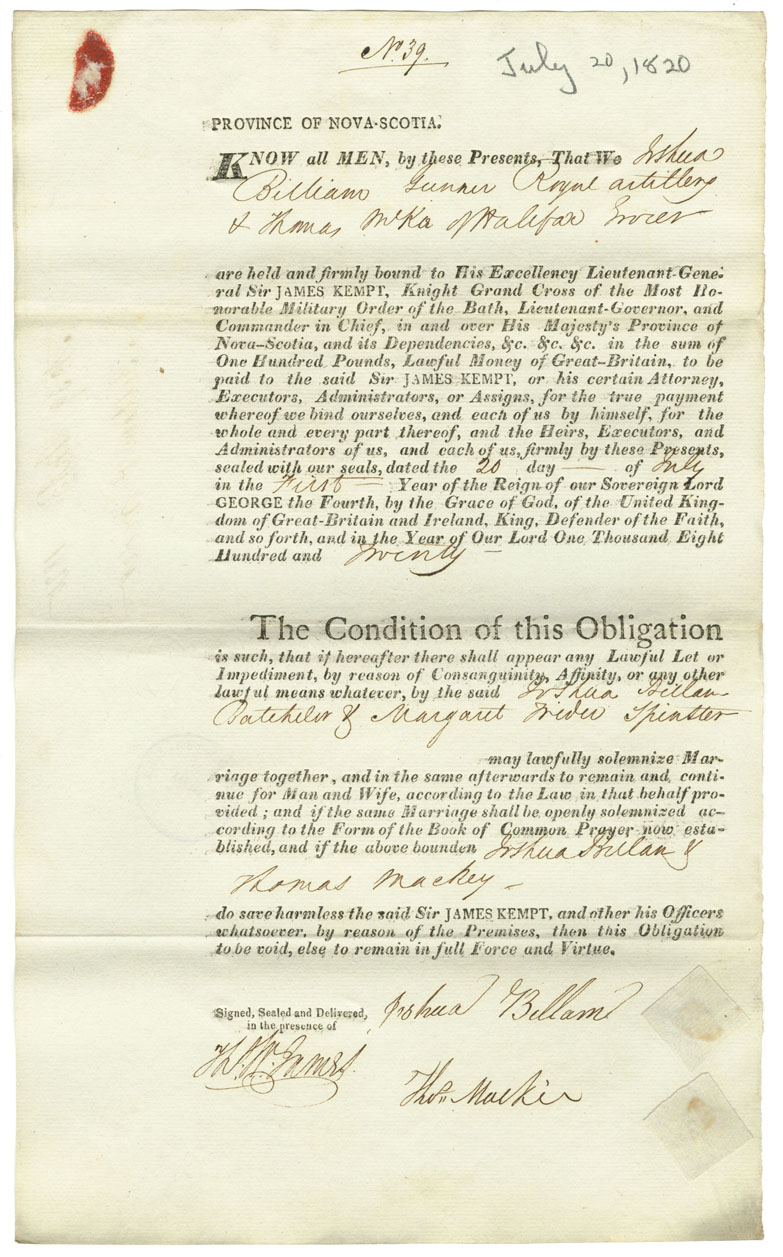 No. 39.
July 20, 1820
PROVINCE OF NOVA-SCOTIA.
KNOW all MEN, by these Presents, That We Joshua
Billiam Gunner Royal artillery
& Thomas McKie of Halifax Grocer
are held and firmly bound to His Excellency Lieutenant-Gene-
ral Sir JAMES KEMPT, Knight Grand Cross of the Most Ho-
norable Military Order of the Bath, Lieutenant-Governor, and
Commander in Chief, in and over His Majesty's Province of
Nova-Scotia, and its Dependencies, &c. &c. &c. in the sum of
One Hundred Pounds, Lawful Money of Great-Britain, to be
paid to the said Sir JAMES KEMPT, or his certain Attorney,
Executors, Administrators, or Assigns, for the true payment
whereof we bind ourselves, and each of us by himself, for the
whole and every part thereof, and the Heirs, Executors, and
Administrators of us, and each of us, firmly by these Presents,
sealed with our seals, dated the 20 day — of July
in the First — Year of the Reign of our Sovereign Lord
GEORGE the Fourth, by the Grace of God, of the United King-
dom of Great-Britain and Ireland, King, Defender of the Faith,
and so forth, and in the Year of Our Lord One Thousand Eight
Hundred and Twenty —
The Condition of this Obligation
is such, that if hereafter there shall appear any Lawful Let or
Impediment, by reason of Consanguinity, Affinity, or any other
lawful means whatever, by the said Joshua Billam
Batchelor & Margaret Spinster
may lawfully solemnize Mar-
riage together, and in the same afterwards to remain and conti-
nue for Man and Wife, according to the Law in that behalf pro-
vided; and if the same Marriage shall be openly solemnized ac-
cording to the Form of the Book of Common Prayer now esta-
blished, and if the above bounden Joshua Billam &
Thomas Mackey —
do save harmless the said Sir JAMES KEMPT, and other his Officers
whatsoever, by reason of the Premises, then this Obligation
to be void, else to remain in full Force and Virtue.
Signed, Sealed and Delivered, Joshua Billam
in the presence of
Thos. W. James
Thos. Mackie